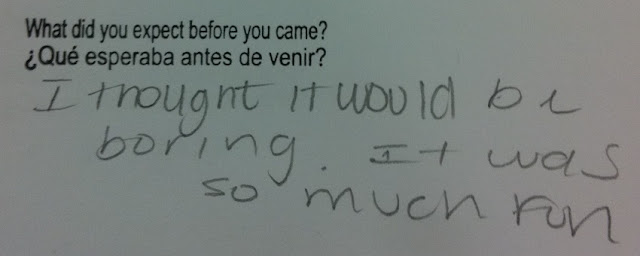 What did you expect before you came?
¿Qué esperaba antes de venir?
I thought it would be
boring. It was
so much fun